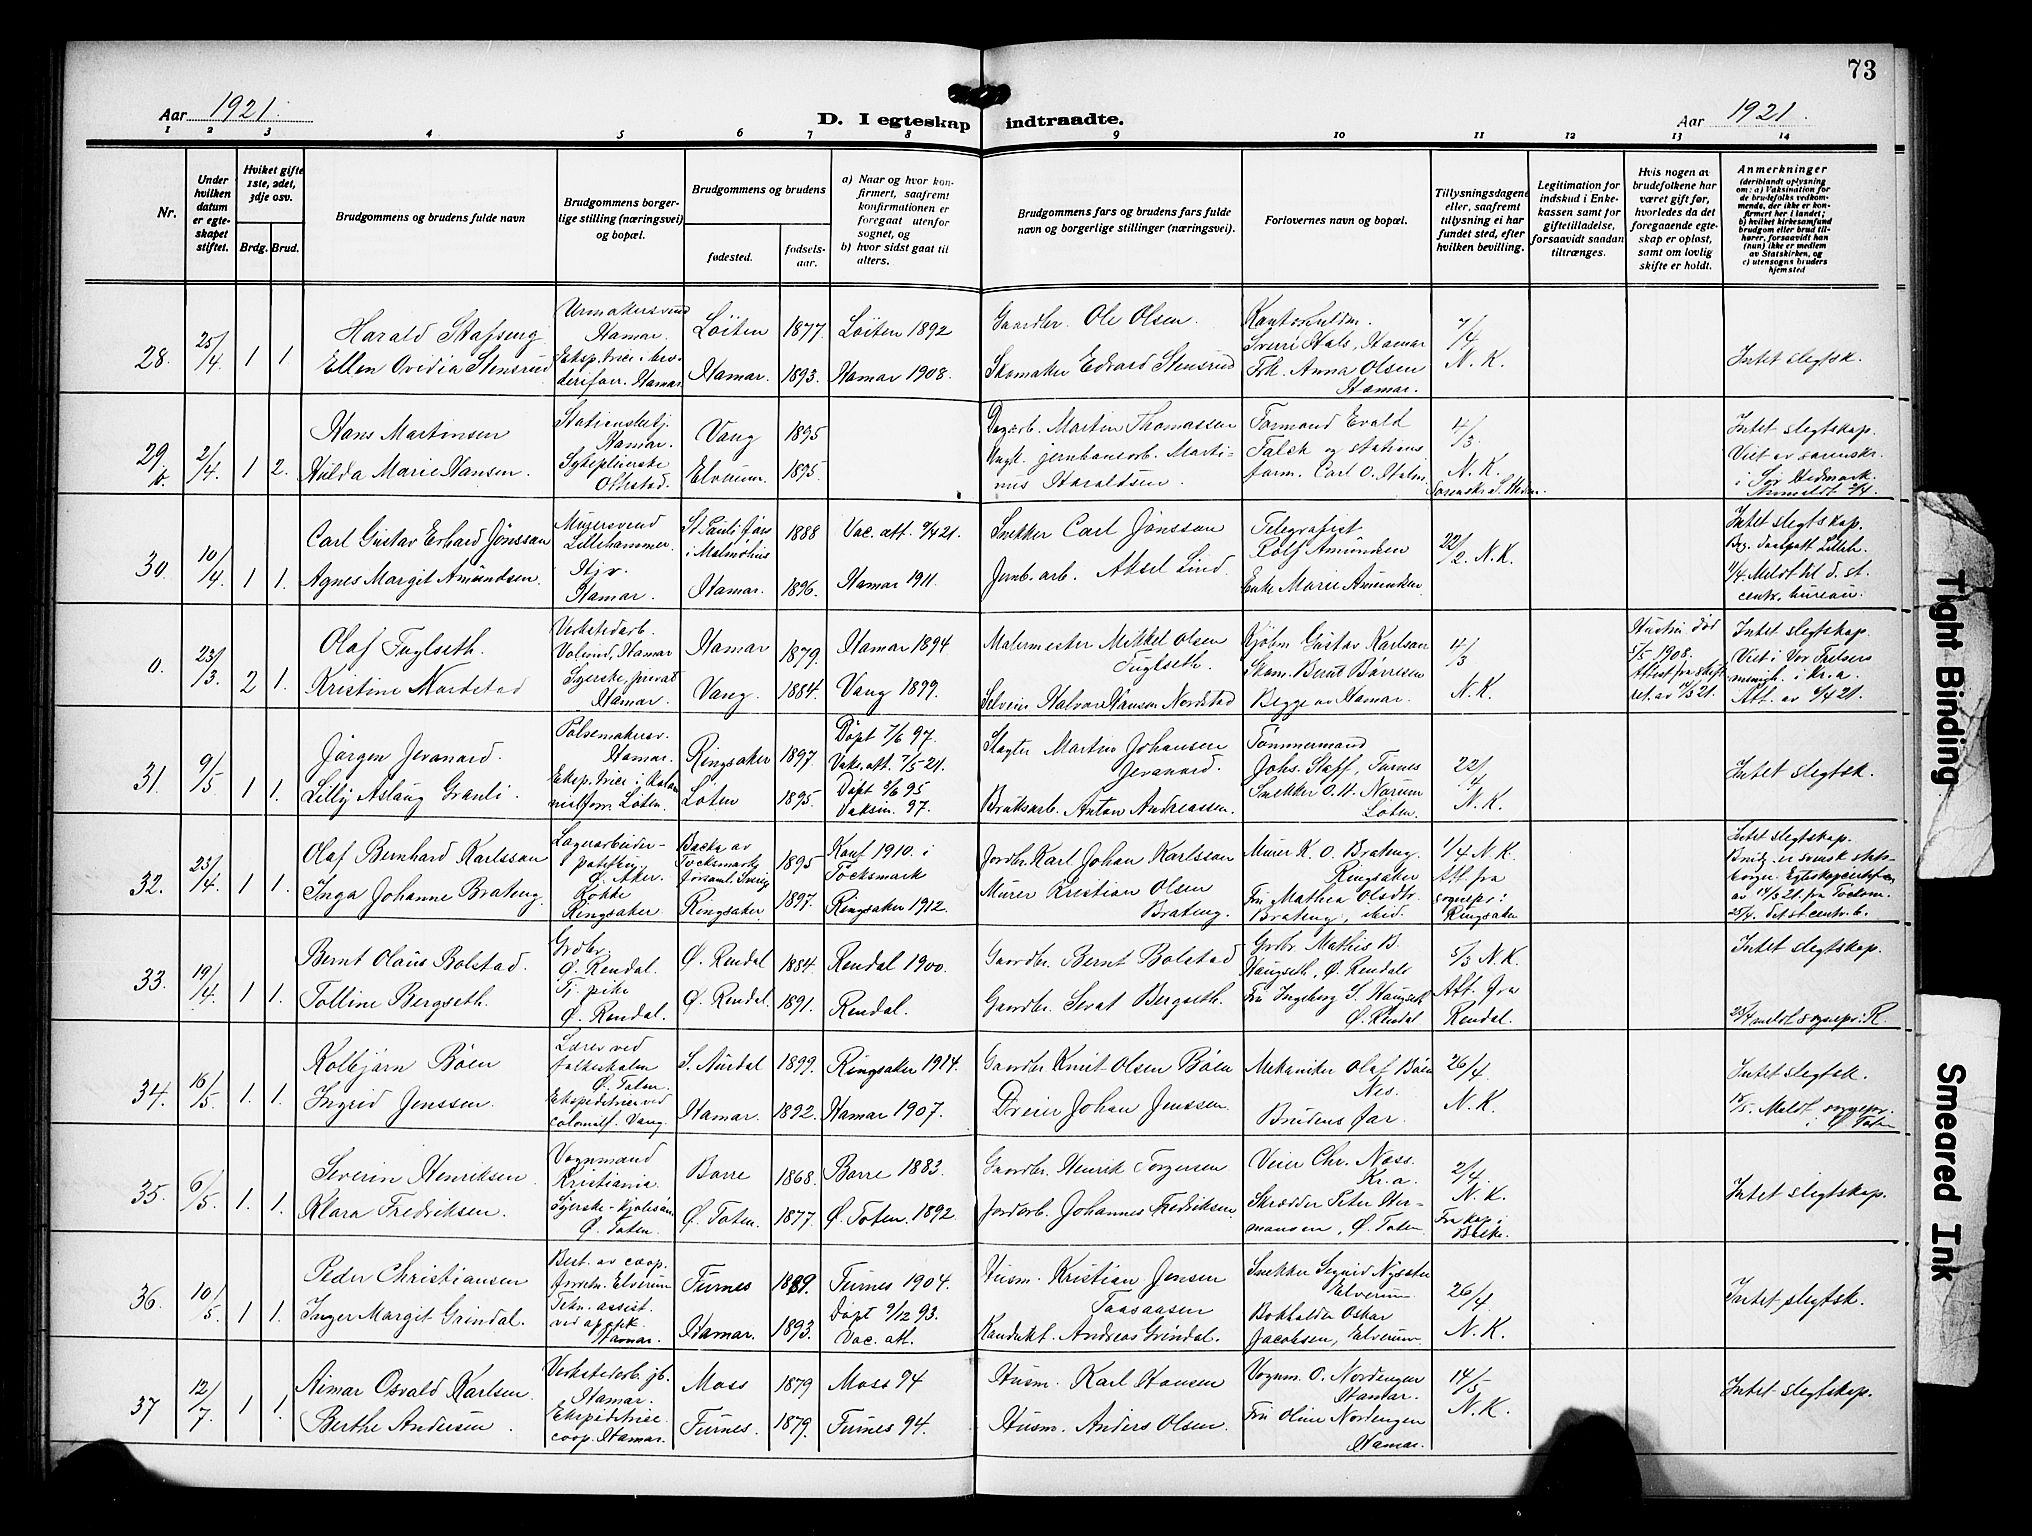 73
Aar 1921.
D. I egteskap indtraadte.
Aar 1921.
1 2 3 4 5 6 7 8 9 10 11 12 13 14
Nr.
Under hvilken datum er egteskapet stiftet.
Hvilket gifte 1ste, 2det, 3dje osv.
Brdg. Brud.
Brudgommens og brudens fulde navn
Brudgommens borgerlige stilling (næringsvei) og bopæl.
Brudgommens og brudens
fødested.
fødselsaar.
a) Naar og hvor konfirmert, saafremt konfirmationen er foregaat utenfor sognet, og
b) hvor sidst gaat til alters.
Brudgommens fars og brudens fars fulde navn og borgerlige stillinger (næringsvei).
Forlovernes navn og bopæl.
Tillysningsdagene eller, saafremt tillysning ei har fundet sted, efter hvilken bevilling.
Legitimation for indskud i Enkekassen samt for giftetilladelse, forsaavidt saadan tiltrænges.
Hvis nogen av brudefolkene har været gift før, hvorledes da det foregaaende egteskap er opløst, samt om lovlig skifte er holdt.
Anmerkninger
(deriblandt oplysning om: a) Vaksination for de brudefolks vedkommende, der ikke er konfirmert her i landet; b) hvilket kirkesamfund brudgom eller brud tilhører, forsaavidt han (hun) ikke er medlem av Statskirken, og c) utensogns bruders hjemsted
28. 25/4 1 1
Harald Stafseng
Urmakersvend Hamar.
Løiten 1877. Løiten 1892
Gaardbr. Ole Olsen.
Sverre Hals, Hamar
7/4 N. K.
Ellen Ovidia Stensrud
Hamar. 1893. Hamar 1908.
Skomaker Edvard Stensrud
Frk. Anna Olsen Hamar.
Intet slegtsk.
29 b. 2/4 1 2.
Hans Martinsen
Hamar.
Vang 1895
Martin Thomassen
Formand Evald Falck og stations form. Carl O. Holm
4/3. N. K.
Intet slegtskap.
Viet av sorenskr. i Sør Hedmark.
Anmeldt 2/4.
Hilda Marie Hansen.
Sykepleierske Ottestad.
Elverum. 1895.
jernbanearb. Martinus Haraldsen.
30. 10/4 1 1.
Carl Gustav Erhard Jönsson
Murersvend Lillehammer.
St. Pauli förs i Malmöhus 1888 Vac. att. 9/4 21.
Snekker Carl Jönsson
Telegrafist Rolf Amundsen
22/2. N. K.
Agnes Margit Amundsen.
Hjv. Hamar.
Hamar. 1896. Hamar 1911.
Jernb. arb. Aksel Lind.
Enke Marie Amundsen
Intet slegtskap.
9/4. Meldt til d. st. centr. bureau.
0. 23/3. 2 1.
Olaf Fuglseth.
Verkstedarb. Hamar
Hamar 1879. Hamar 1894
Malermester Mikkel Olsen Fuglseth.
Kjøbm. Gustav Karlsen
4/3 N. K.
Hustru død 5/5 1908.
Intet slegtskap.
Viet i Vor Frelsers menigh. i Kr.a.
Att. av 4/4 21.
Kristine Nordstad
Syerske, privat Hamar.
Vang. 1884. Vang 1899.
Selveier Halvor Hansen Nordstad
Skom. Bernt Børresen
Begge av Hamar.
31. 9/5 1 1.
Jørgen Jevanord.
Pølsemakersv. Hamar.
Ringsaker 1897. Døpt 7/6 97.
Vaks. att. 7/5-21.
Slagter Martin Johansen Jevanord.
Tømmermand Johs. Staff, Furnes
22/4. N. K.
Intet slegtsk.
Lilly Aslaug Granli.
Løten 1895. Døpt 2/6 95
Vaksin. 97.
Bruksarb. Anton Andreassen.
Snekker O. H. Norum Løten.
32. 23/4 1 1.
Olaf Bernhard Karlsson
Lagerarbeider Ø. Aker.
1895 Konf 1910. i Tocksmark
Jordbr. Karl Johan Karlsson
Murer K. O. Brateng. Ringsaker
1/4 N. K.
Att. fra sognepr: Ringsaker
Inga Johanne Brateng.
Kokke Ringsaker
Ringsaker. 1897. Ringsaker 1912.
Murer Kristian Olsen Brateng.
Fru Mathea Olsdtr. Brateng, ibid.
Intet slegtskap.
Brudg. er svensk stats-borger.
33. 19/4 1 1.
Bernt Olaus Bolstad.
Grdbr. Ø. Rendal.
Ø. Rendal 1884. Rendal 1900.
Gaardbr. Bernt Bolstad
Grdbr. Mathis B. Haugseth, Ø. Rendal
5/3 N. K.
Att. fra Rendal.
Intet slegtskap.
Talline Bergseth.
Tj. pike Ø. Rendal.
Ø. Rendal. 1891. Rendal.
Gaardbr. Sivat Bergseth.
Fru Ingeborg S. Haugseth Ø. Rendal
23/4 meldt sognepr: R.
34. 16/5. 1. 1.
Kolbjørn Bøen
Lærer ved folkeskolen Ø. Toten.
S. Aurdal 1899. Ringsaker 1914.
Gaardbr Knut Olsen Bøen
Mekaniker Olaf Bøen Nes.
26/4. N. K.
Intet slegtsk.
Ingrid Jenssen.
Ekspeditrice ved colonialf. Vang.
Hamar. 1892. Hamar 1907.
Dreier Johan Jenssen.
Brudens far.
18/5. Meldt sognepr. i Ø Toten
35. 6/5. 1. 1.
Severin Henriksen.
Vognmand Kristiania.
Borre 1868. Borre 1883.
Gaardbr. Henrik Torgersen
Veier Chr. Næss. Kr.a.
2/4. N. K.
Klara Fredriksen.
Syerske-kjolesøm Ø. Toten.
Ø. Toten. 1877. Ø. Toten. 1892.
Jordarb. Johannes Fredriksen.
Skrædder Peter Hermansen, Ø. Toten
Intet slegtskap.
36. 10/5 1 1.
Peder Christiansen
Best. av coop. forretn. Elverum
Furnes 1889. Furnes 1904.
Husm. Kristian Jensen Taasaasen
Elverum
26/4. N. K.
Intet slegtsk.
Inger Margit Grindal.
Tekn. assist. ved apotek Hamar.
Hamar. 1893. Døpt 9/12 93. Vac. att.
Kondukt. Andreas Grindal.
Bokholder Oskar Jacobsen, Elverum
37 12/7. 1 1.
Aimar Osvald Karlsen.
Verkstedarb. jb. Hamar.
Moss 1879 Moss 94
Husm. Karl Hansen
Vognm. O. Nordengen Hamar.
14/5 N. K.
Intet slegtskap.
Berthe Andersen.
Ekspeditrice coop. Hamar.
Furnes. 1879. Furnes 94.
Husm. Anders Olsen.
Fru Oline Nordengen Hamar.
Tight Binding
Smeared Ink